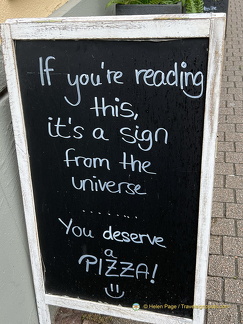 If you're reading
this,
it's a sign
from the
universe
........
You deserve
a
PIZZA!
© Helen Page / Travel